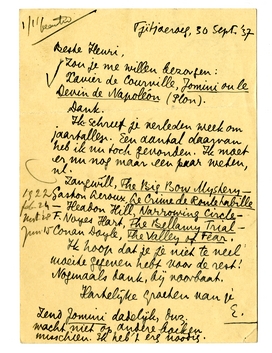 1/11 beantw.
Tjitjoeroeg, 30 Sept. '37
Beste Henri,
Zou je me willen bezorgen:
Xavier de Courville, Jomini ou le
Devin de Napoléon (Plon).
Dank.
Ik schreef je verleden week om
jaartallen. Een aantal daarvan
heb ik nu toch gevonden. Ik moet
er nu nog maar een paar weten,
nl.
Zangwill, The Big Bow Mystery
Gaston Leroux, Le Crime de Rouletabille
Vernon Narrowing Circle
F. Noyes Hart, The Bellamy Trial
Conan Doyle, The Valley of Fear.
Ik hoop dat je je niet te veel
moeite gegeven hebt voor de rest!
Nogmaals dank, bij voorbaat.
Hartelijke groeten van je
E.
Zend Jomini dadelijk, bv.
wacht niet op andere boeken
misschien. Ik heb 't erg noodig.